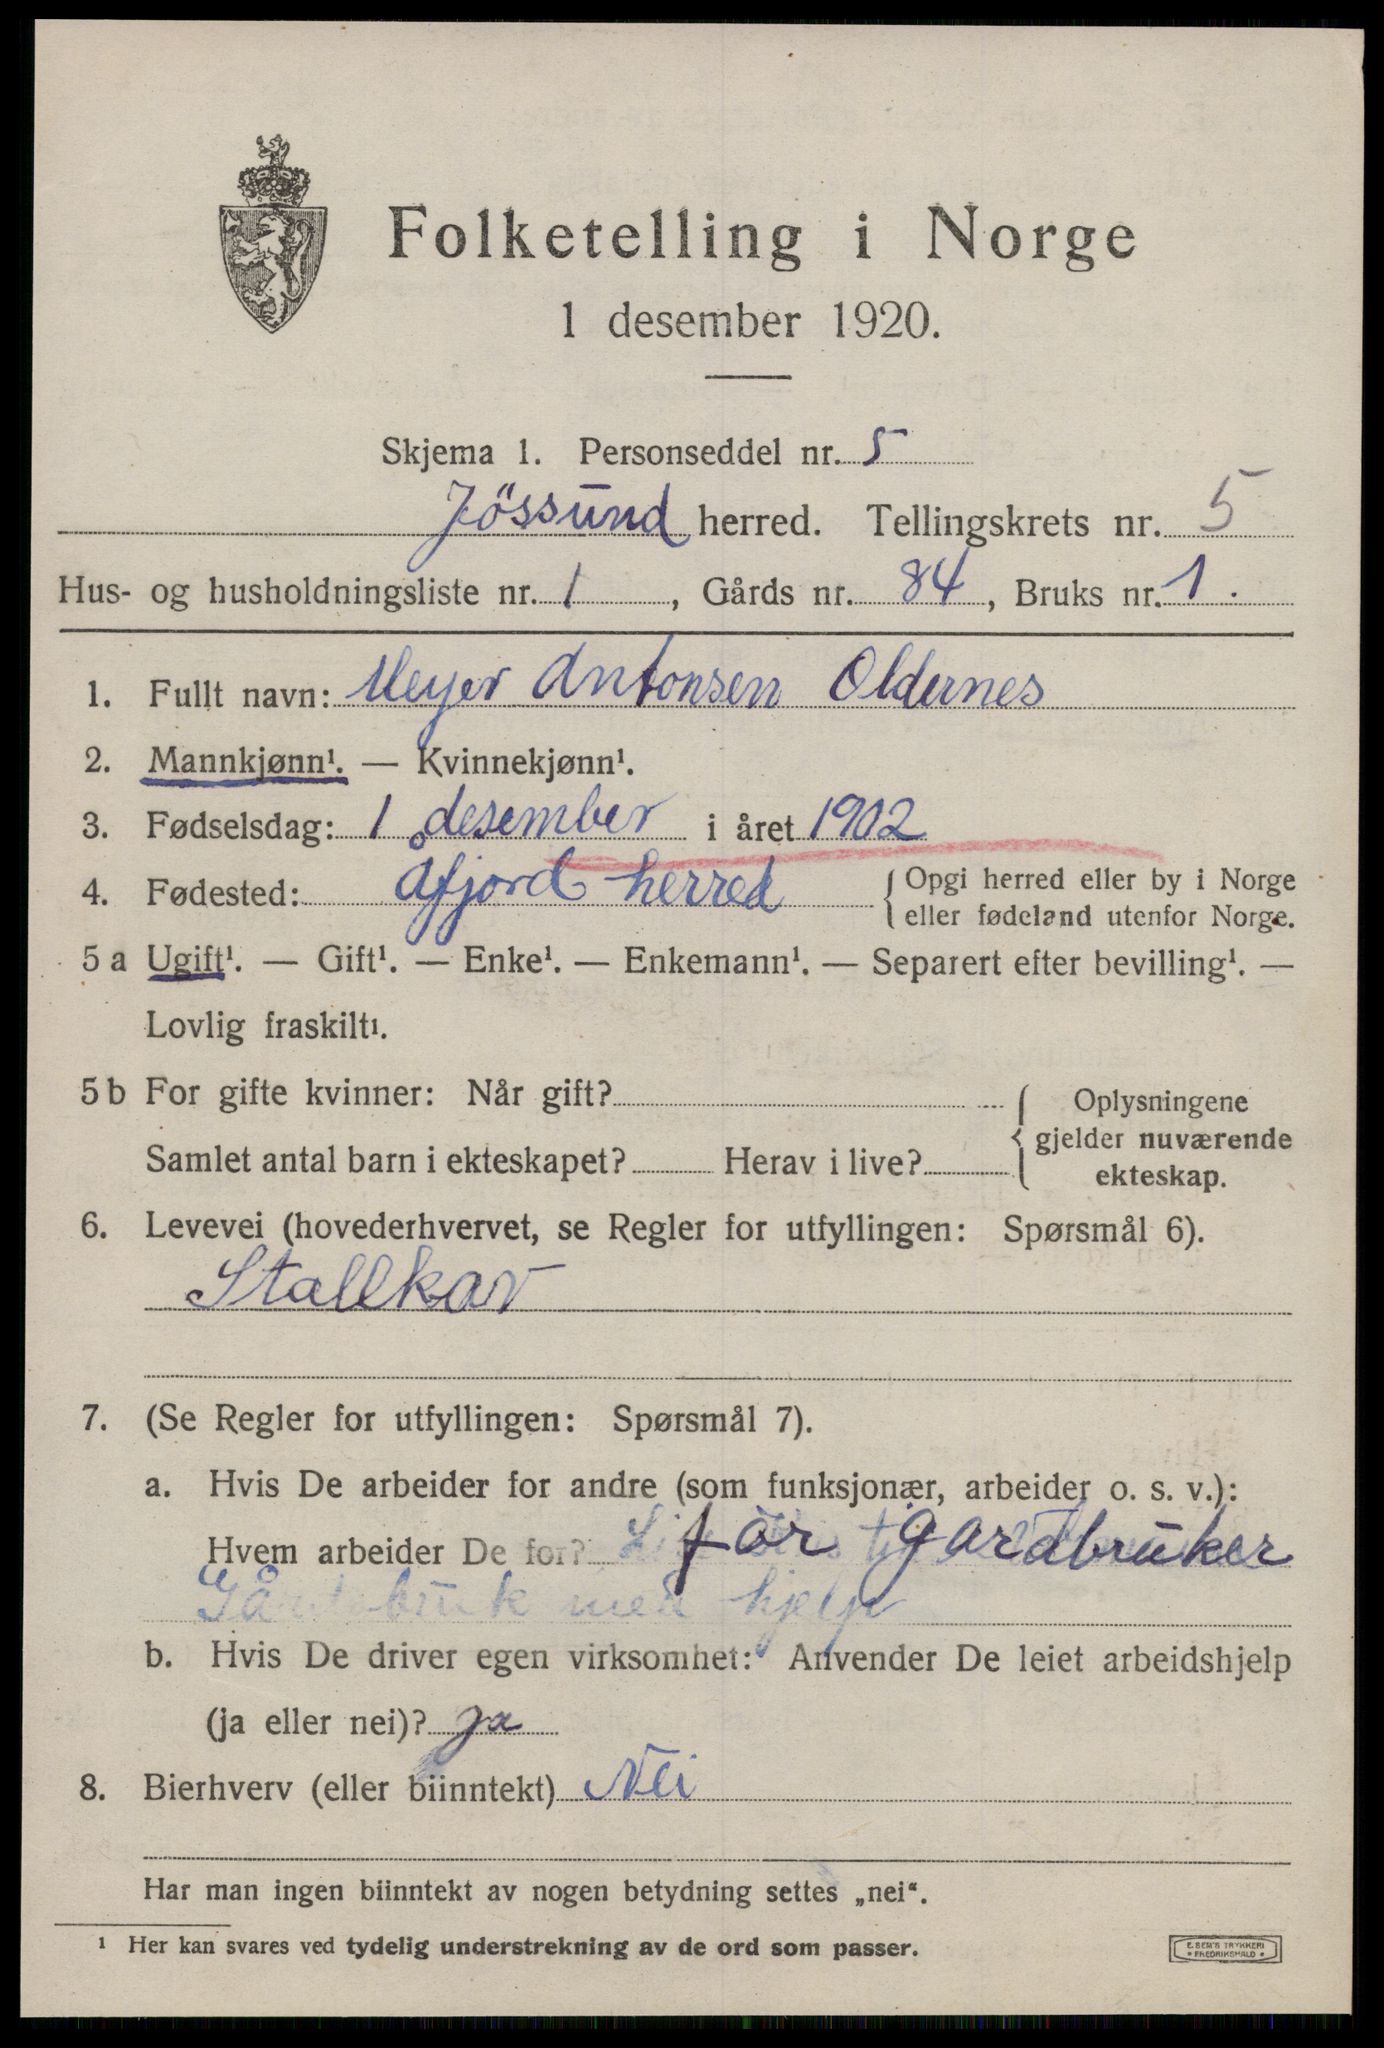 Folketelling i Norge
1 desember 1920.
Skjema 1. Personseddel nr. 5
Jössund herred. Tellingskrets nr. 5
Hus- og husholdningsliste nr. 1, Gårds nr. 84, Bruks nr. 1.
1. Fullt navn: Meyer Antonsen Oldernes
2. Mannkjønn¹. — Kvinnekjønn¹.
3. Fødselsdag: 1 desember i året 1902
4. Fødested: Åfjord herred {Opgi herred eller by i Norge
eller fødeland utenfor Norge.
5 a Ugift¹. — Gift¹. — Enke¹. — Enkemann¹. — Separert efter bevilling¹. —
Lovlig fraskilt¹.
5 b For gifte kvinner: Når gift?
Samlet antal barn i ekteskapet? Herav i live?
{Oplysningene
gjelder nuværende
ekteskap.
6. Levevei (hovederhvervet, se Regler for utfyllingen: Spørsmål 6).
Stallkar
7. (Se Regler for utfyllingen: Spørsmål 7).
a. Hvis De arbeider for andre (som funksjonær, arbeider o. s. v.):
Hvem arbeider De for? for gardbruker
Gårdsbruk med hjelp
b. Hvis De driver egen virksomhet: Anvender De leiet arbeidshjelp
(ja eller nei)? ja
8. Bierhverv (eller biinntekt) Nei
Har man ingen biinntekt av nogen betydning settes „nei“.
¹ Her kan svares ved tydelig understrekning av de ord som passer.
E. SEM'S TRYKKERI
FREDRIKSHALD